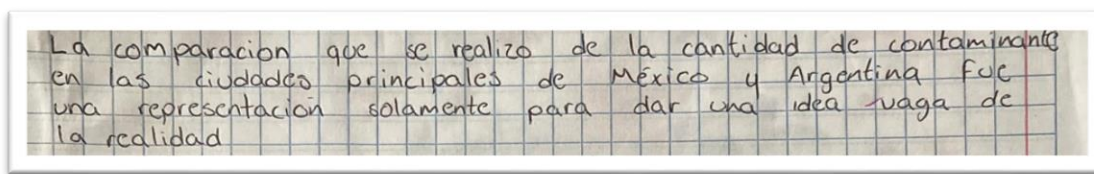 La comparacion que se realizo de la cantidad de contaminante
en las ciudades principales de México y Argentina fue
una representación solamente para dar una idea vaga de
la realidad